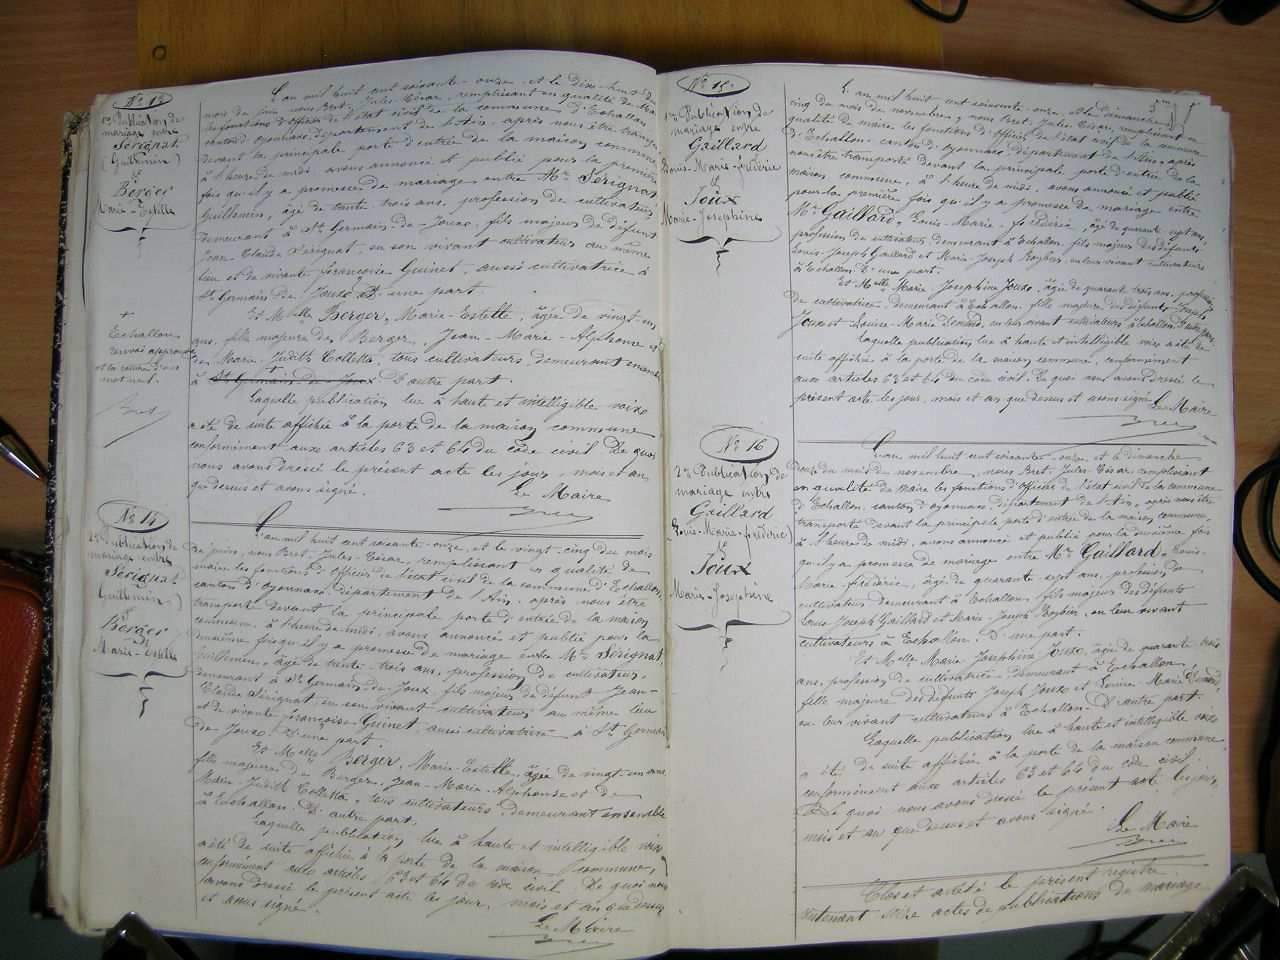 N° 13
1re Publication de
mariage entre
Sérignat
(Guillemin)
et
Berger
Marie-Estelle
L'an mil huit cent soixante-onze et le dix-huit du
mois de juin, nous Bret, Jules-César, remplissant en qualité de Maire
les fonctions d'officier de l'état civil de la commune d'Echallon,
canton d'oyonnax, département de l'Ain, après nous être transporté
devant la principale porte d'entrée de la maison commune
à l'heure de midi avons annoncé et publié pour la première
fois qu'il y a promesse de mariage entre Mr Sérignat,
Guillemin, âgé de trente-trois ans, profession de cultivateur,
demeurant à St Germain-de-Joux, fils majeur de défunt
Jean-Claude Sérignat, en son vivant cultivateur au même
lieu et de vivante françoise Guinet, aussi cultivatrice à
St Germain de Joux, D'une part
Et Melle Berger, Marie-Estelle, âgée de vingt-un
ans, fille majeure de Berger, Jean-Marie-Alphonse et
de Marie-Judith Colletta, tous cultivateurs, demeurant ensemble
à St Germain de Joux D'autre part.
+
Echallon
renvoi approuvé
et la rature d'un
mot nul.
Bret
Laquelle publication, lue à haute et intelligible voix
a été de suite affichée à la porte de la maison commune
conformément aux articles 63 et 64 du code civil De quoi
nous avons dressé le présent acte les jour, mois et an
que dessus et avons signé.
Le Maire
Bret
N° 14
2e Publication de
mariage entre
Sérignat
(Guillemin)
et
Berger
Marie-Estelle
L'an mil huit cent soixante-onze, et le vingt-cinq du mois
de juin, nous Bret, Jules-César, remplissant en qualité de
maire les fonctions d'officier de l'état civil de la commune d'Echallon,
canton d'oyonnax, département de l'Ain, après nous être
transporté devant la principale porte d'entrée de la maison
commune, à l'heure de midi, avons annoncé et publié pour la
deuxième fois qu'il y a promesse de mariage entre Mr Sérignat,
Guillemin, âgé de trente-trois ans, profession de cultivateur,
demeurant à St Germain de Joux, fils majeur de défunt Jean-
Claude Sérignat, en son vivant cultivateur au même lieu
et de vivante françoise Guinet, aussi cultivatrice à St Germain
de Joux, D'une part
Et Melle Berger, Marie-Estelle, âgée de vingt-un ans,
fille majeure de Berger, Jean-Marie-Alphonse et de
Marie-Judith Colletta, tous cultivateurs demeurant ensemble
à Echallon. D'autre part.
Laquelle publication, lue à haute et intelligible voix,
a été de suite affichée à la porte de la maison commune,
conformément aux articles 63 et 64 du code civil. De quoi nous
avons dressé le présent acte les jour, mois et an que dessus
et avons signé.
Le Maire
Bret
N° 15
1re Publication de
mariage entre
Gaillard
Louis-Marie-frédéric
et
Joux
Marie-Josephine
L'an mil huit cent soixante-onze, et le dimanche
cinq du mois de novembre, nous Bret, Jules César, remplissant en
qualité de maire les fonctions d'officier de l'état civil de la commune
d'Echallon, canton d'oyonnax département de l'Ain, après
nous être transporté devant la principale porte d'entrée de la
maison commune, à l'heure de midi, avons annoncé et publié
pour la première fois qu'il y a promesse de mariage entre
Mr Gaillard, Louis-Marie-frédéric, âgé de quarante sept ans,
profession de cultivateur, demeurant à Echallon, fils majeur des défunts
Louis-Joseph Gaillard et Marie-Joseph en leur vivant cultivateurs
à Echallon. D'une part.
Et Melle Marie-Josephine Joux, âgée de quarante trois ans, profession
de cultivatrice, demeurant à Echallon, fille majeure de défunts Joseph
Joux et Louise-Marie en leur vivant cultivateurs à Echallon D'autre part.
Laquelle publication lue à haute et intelligible voix a été de
suite affichée à la porte de la maison commune, conformément
aux articles 63 et 64 du code civil. De quoi nous avons dressé le
présent acte les jour, mois et an que dessus et avons signé.
Le Maire
Bret
N° 16
2e Publication de
mariage entre
Gaillard
(Louis-Marie-frédéric)
et
Joux
Marie-Josephine
L'an mil huit cent soixante-onze, et le dimanche
douze du mois de novembre, nous Bret-Jules-César, remplissant
en qualité de maire les fonctions d'officier de l'état civil de la commune
d'Echallon, canton d'oyonnax, département de l'Ain, après nous être
transporté devant la principale porte d'entrée de la maison commune,
à l'heure de midi, avons annoncé et publié pour la deuxième fois
qu'il y a promesse de mariage entre Mr Gaillard, Louis-
Marie-frédéric, âgé de quarante sept ans, profession de
cultivateur demeurant à Echallon, fils majeur des défunts
Louis-Joseph Gaillard et Marie-Joseph en leur vivant
cultivateurs à Echallon. D'une part.
Et Melle Marie Josephine Joux, âgée de quarante-trois
ans, profession de cultivatrice demeurant à Echallon,
fille majeure des défunts Joseph Joux et Louise-Marie
en leur vivant cultivateurs à Echallon. D'autre part
Laquelle publication lue à haute et intelligible voix
a été de suite affichée à la porte de la maison commune
conformément aux articles 63 et 64 du code civil.
De quoi nous avons dressé le présent acte les jour,
mois et an que dessus et avons signé
Le Maire
Bret
Clos et arrêté le présent registre
contenant seize actes de publications de mariage